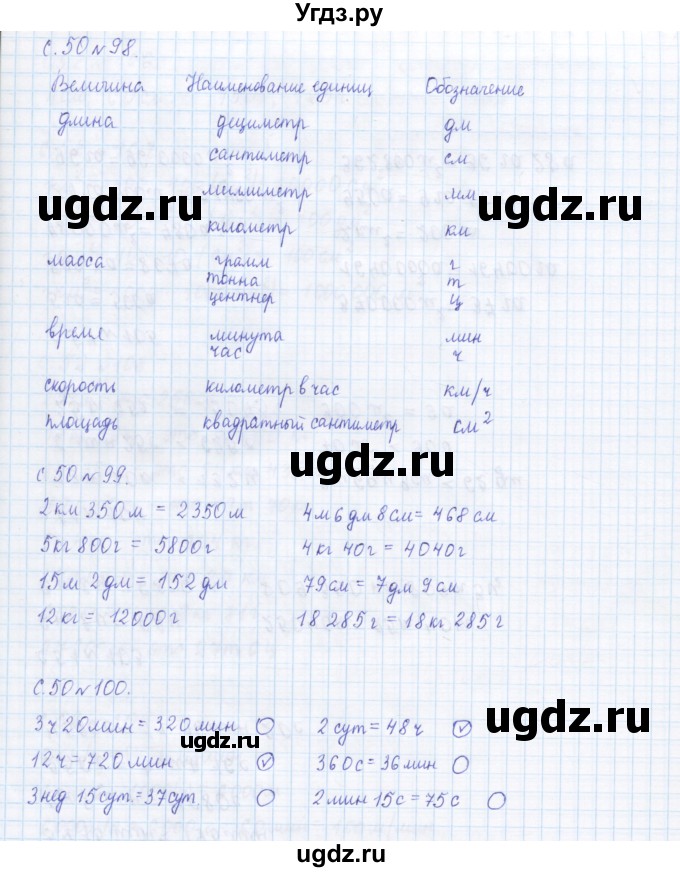 Угдз.ру
с. 50 №98.
Величина Наименование единиц Обозначение
длина дециметр дм
сантиметр см
миллиметр мм
ugdz.ru ugdz.ru
километр км
масса грамм г
тонна т
центнер ц
время минута мин
час ч
скорость километр в час км/ч
площадь квадратный сантиметр см²
ugdz.ru
с. 50 №99.
2 км 350 м = 2350 м 4 м 6 дм 8 см = 468 см
5 кг 800 г = 5800 г 4 кг 40 г = 4040 г
15 м 2 дм = 152 дм 79 см = 7 дм 9 см
12 кг = 12000 г 18 285 г = 18 кг 285 г
с. 50 №100.
3 ч 20 мин = 320 мин 2 сут = 48 ч
ugdz.ru ugdz.ru
12 ч = 720 мин 360 с = 36 мин
3 нед 15 сут. = 37 сут. 2 мин 15 с = 75 с
ugdz.ru